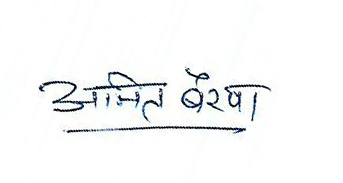 अमित बैरवा